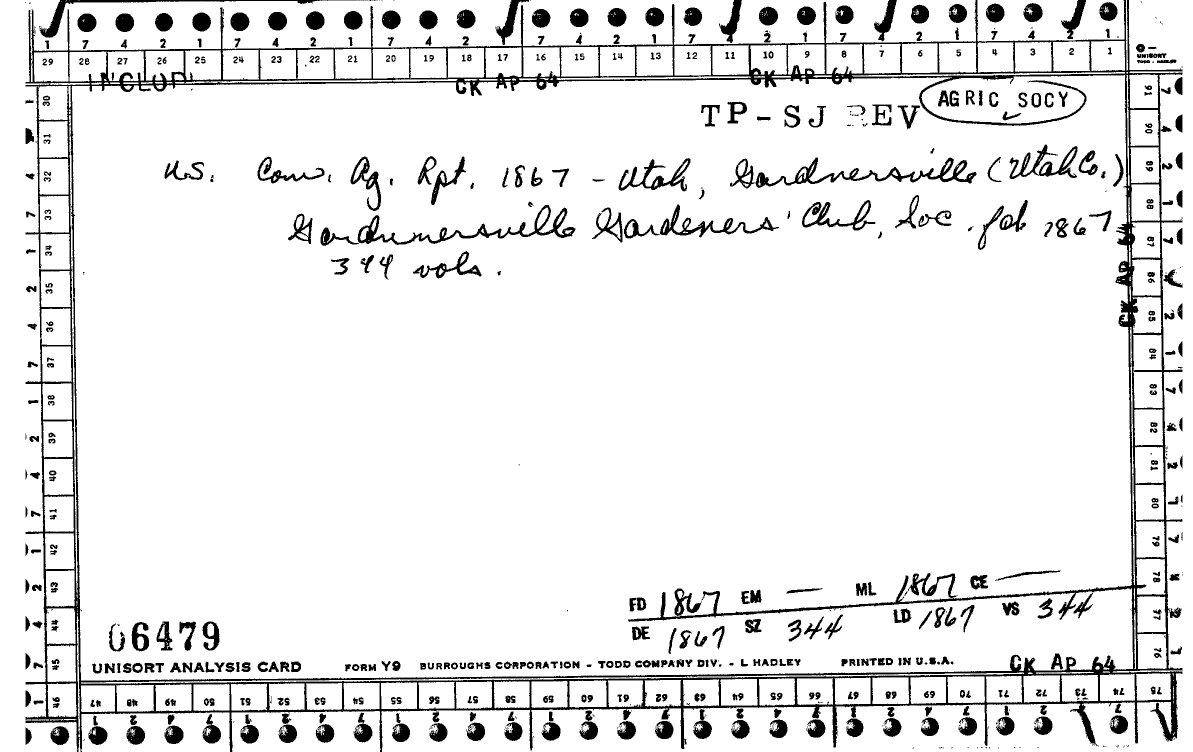 7 4 2 1 7 4 2 1 7 4 2 1 7 4 2 1 7 4 2 1 7 4 2 1 7 4 2 1
29 28 27 26 25 24 23 22 21 20 19 18 17 16 15 14 13 12 11 10 9 8 7 6 5 4 3 2 1
UNISORT
TODD - HADLEY
CK AP 64 CK AP 64
TP-SJ REV AGRIC SOCY
U.S. Com. Ag. Rpt. 1867 - Utah, Gardnersville (Utah Co.)
Gardnersville Gardeners' Club, Soc. fdd 1867
344 vols.
30 31 32 33 34 35 36 37 38 39 40 41 42 43 44 45 46
91 90 89 88 87 86 85 84 83 82 81 80 79 78 77 76 75
CK AP 64
FD 1867 EM — ML 1867 CE —
DE 1867 SZ 344 LD 1867 VS 344
06479
UNISORT ANALYSIS CARD FORM Y9 BURROUGHS CORPORATION - TODD COMPANY DIV. - L HADLEY PRINTED IN U.S.A. CK AP 64
47 48 49 50 51 52 53 54 55 56 57 58 59 60 61 62 63 64 65 66 67 68 69 70 71 72 73 74